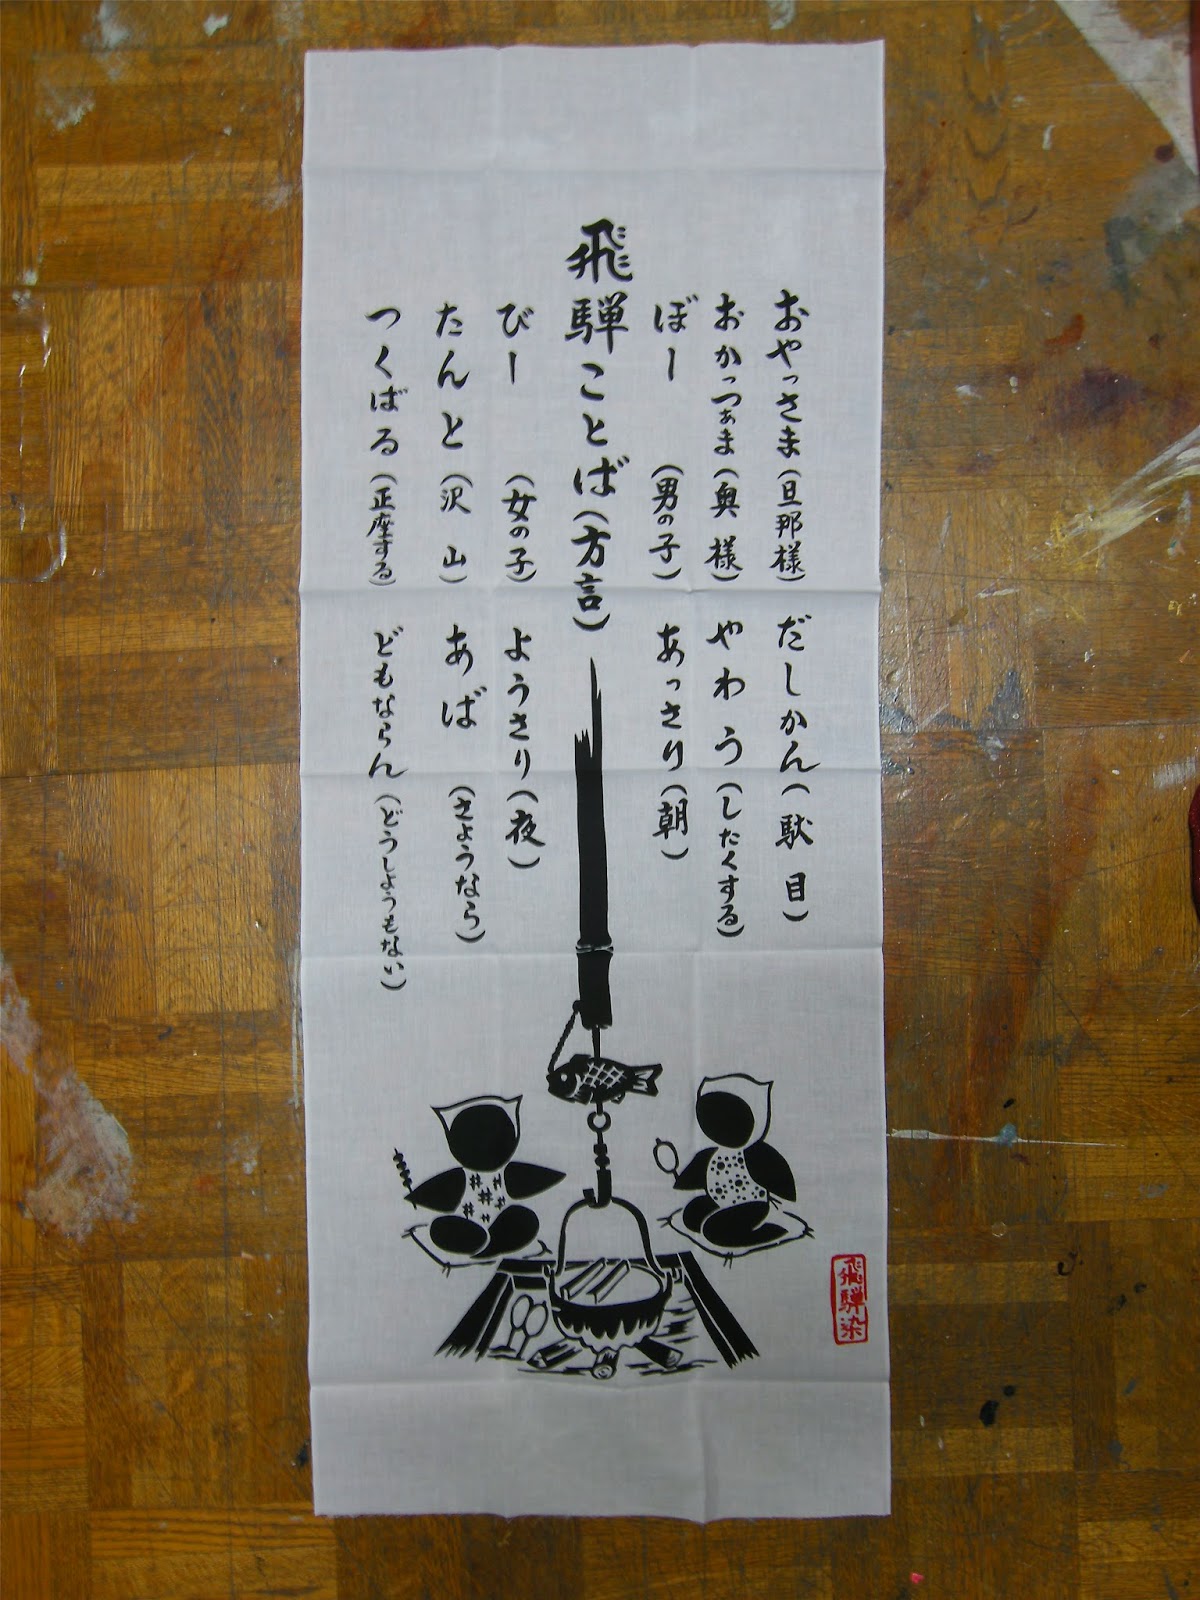 おやっさま(旦那様) だしかん(駄目)
おかっつぁま(奥様) やわう(したくする)
ぼー(男の子) あっさり(朝)
飛騨ことば(方言)
びー(女の子) ようさり(夜)
たんと(沢山) あば(さようなら)
つくばる(正座する) どもならん(どうしようもない)
飛騨染